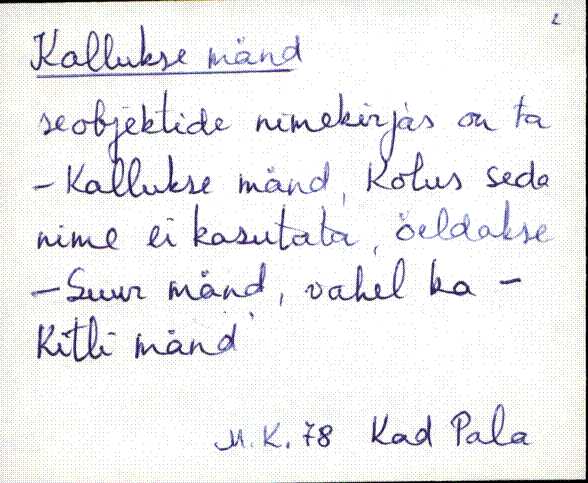 2
Kallukse mänd
seobjektide nimekirjas on ta
- Kallukse mänd, Kolus seda
nime ei kasutata, öeldakse
- Suur mänd, vahel ka -
Kitli mänd
M. K. 78 Kad Pala